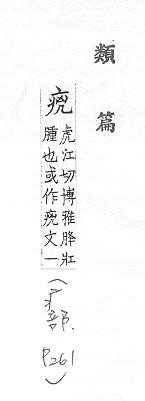 類篇
虎江切博雅胮壯
腫也或作文一
(疒部. P261)